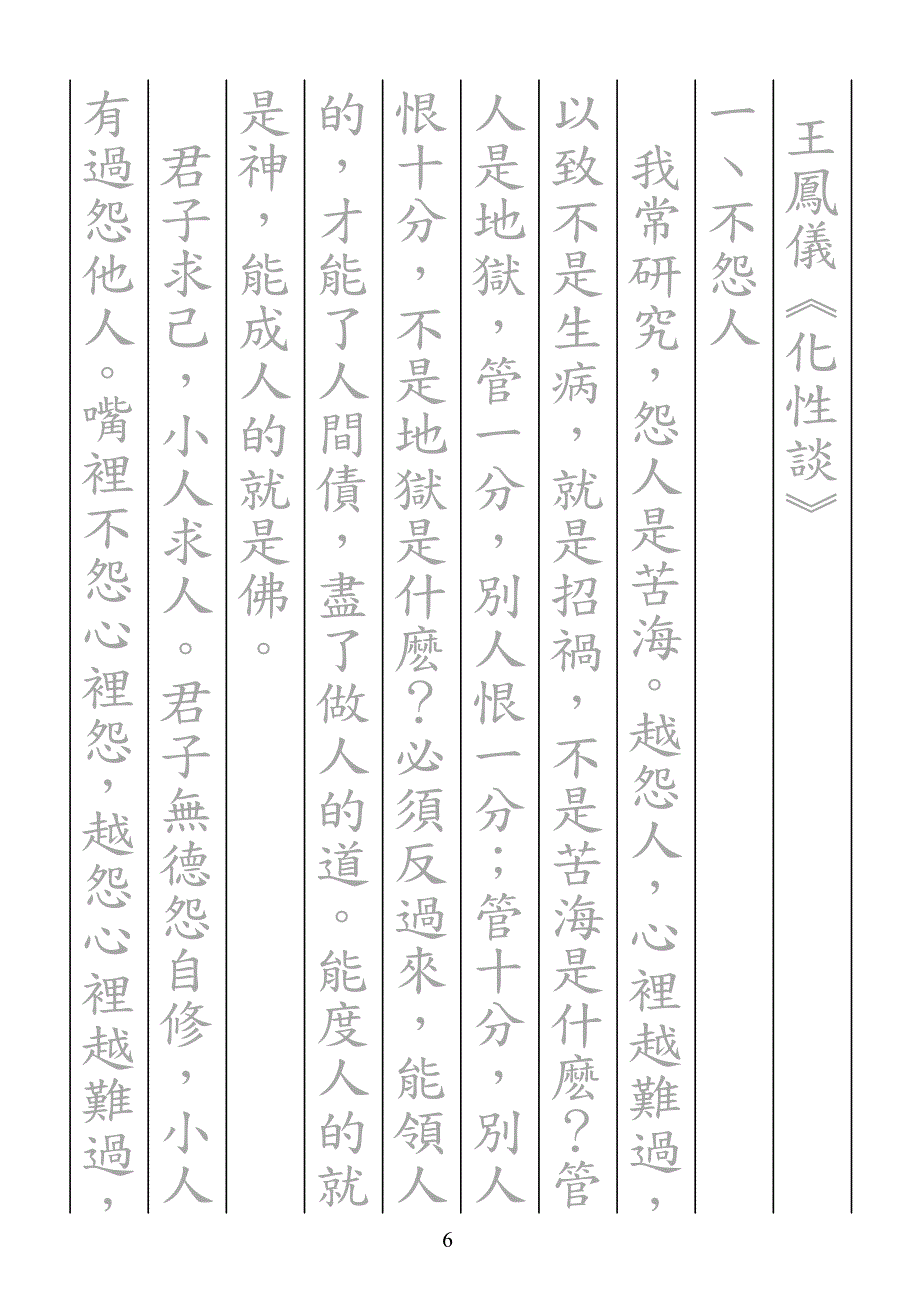 王鳳儀《化性談》
一、不怨人
我常研究，怨人是苦海。越怨人，心裡越難過，
以致不是生病，就是招禍，不是苦海是什麼？管
人是地獄，管一分，別人恨一分；管十分，別人
恨十分，不是地獄是什麼？必須反過來，能領人
的，才能了人間債，盡了做人的道。能度人的就
是神，能成人的就是佛。
君子求己，小人求人。君子無德怨自修，小人
有過怨他人。嘴裡不怨心裡怨，越怨心裡越難過，
6